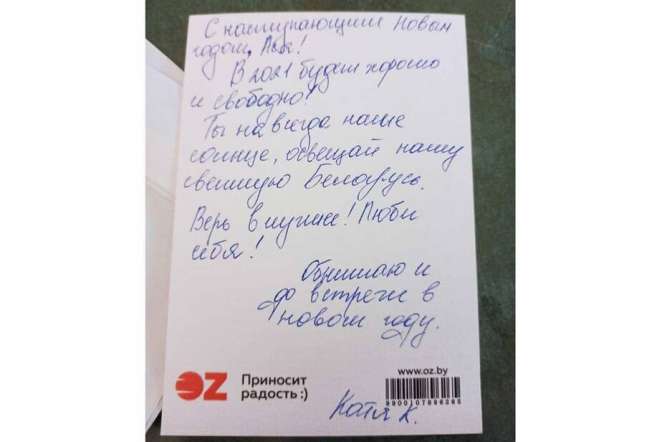 С наступающим Новым
годом, !
В 2021 будет хорошо
и свободно!
Ты навсегда наше
солнце, освещай нашу
светлую Беларусь.
Верь в лучшее! Люби
себя!
Обнимаю и
до встречи в
новом году.
OZ
Приносит
радость :)
www.oz.by
Катя К.